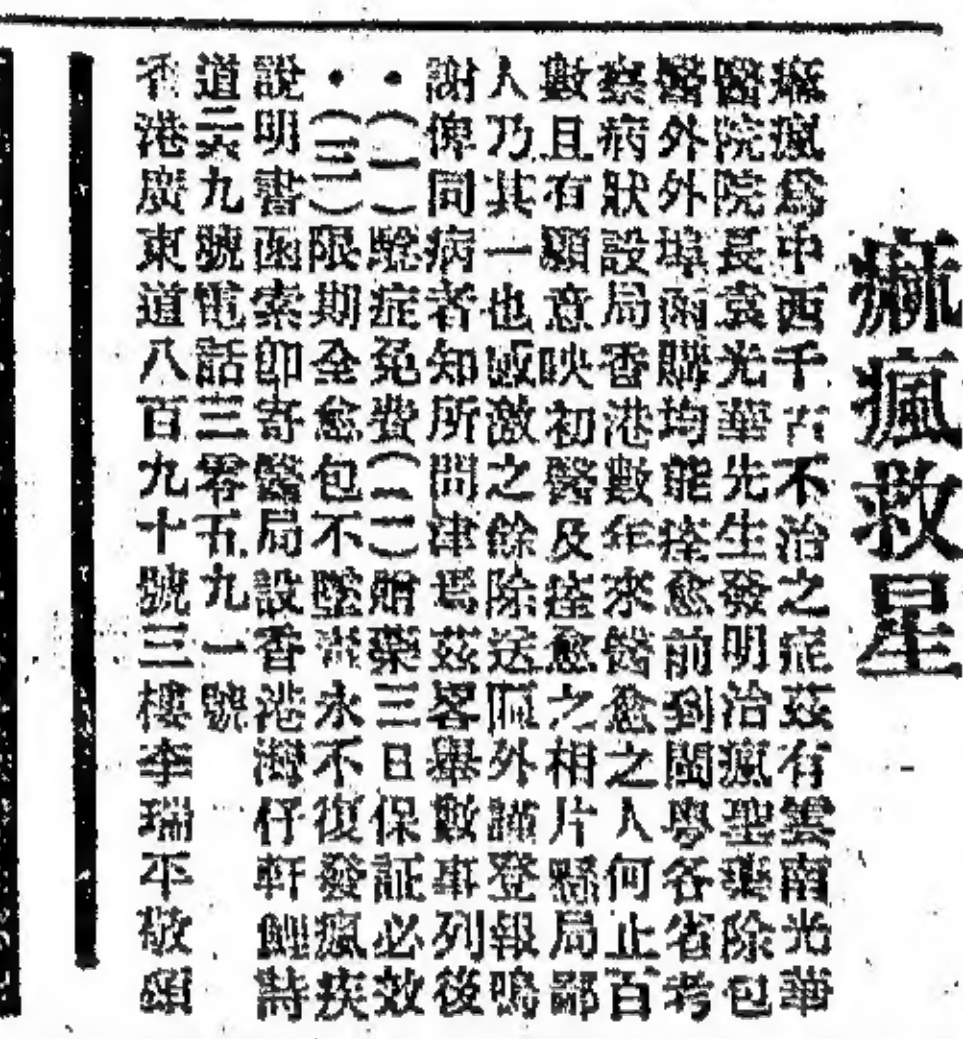 痲瘋救星
痲瘋爲中西千古不治之症茲有雲南光華
醫院院長袁光華先生發明治瘋聖藥除包
醫外外埠函購均能痊愈前到閩粵各省考
察病狀設局香港數年來醫愈之人何止百
數且有願意映初醫及痊愈之相片懸局鄙
人乃其一也感激之餘除送匾外謹登報鳴
謝俾同病者知所問津焉茲畧舉數事列後
・(一)騐症免費(二)贈藥三日保証必效
・(三)限期全愈包不墜 永不復發瘋疾
說明書函索卽寄醫局設香港灣仔軒鯉詩
道二六九號電話三零五九一號
香港廣東道八百九十號三樓李瑞平敬頌